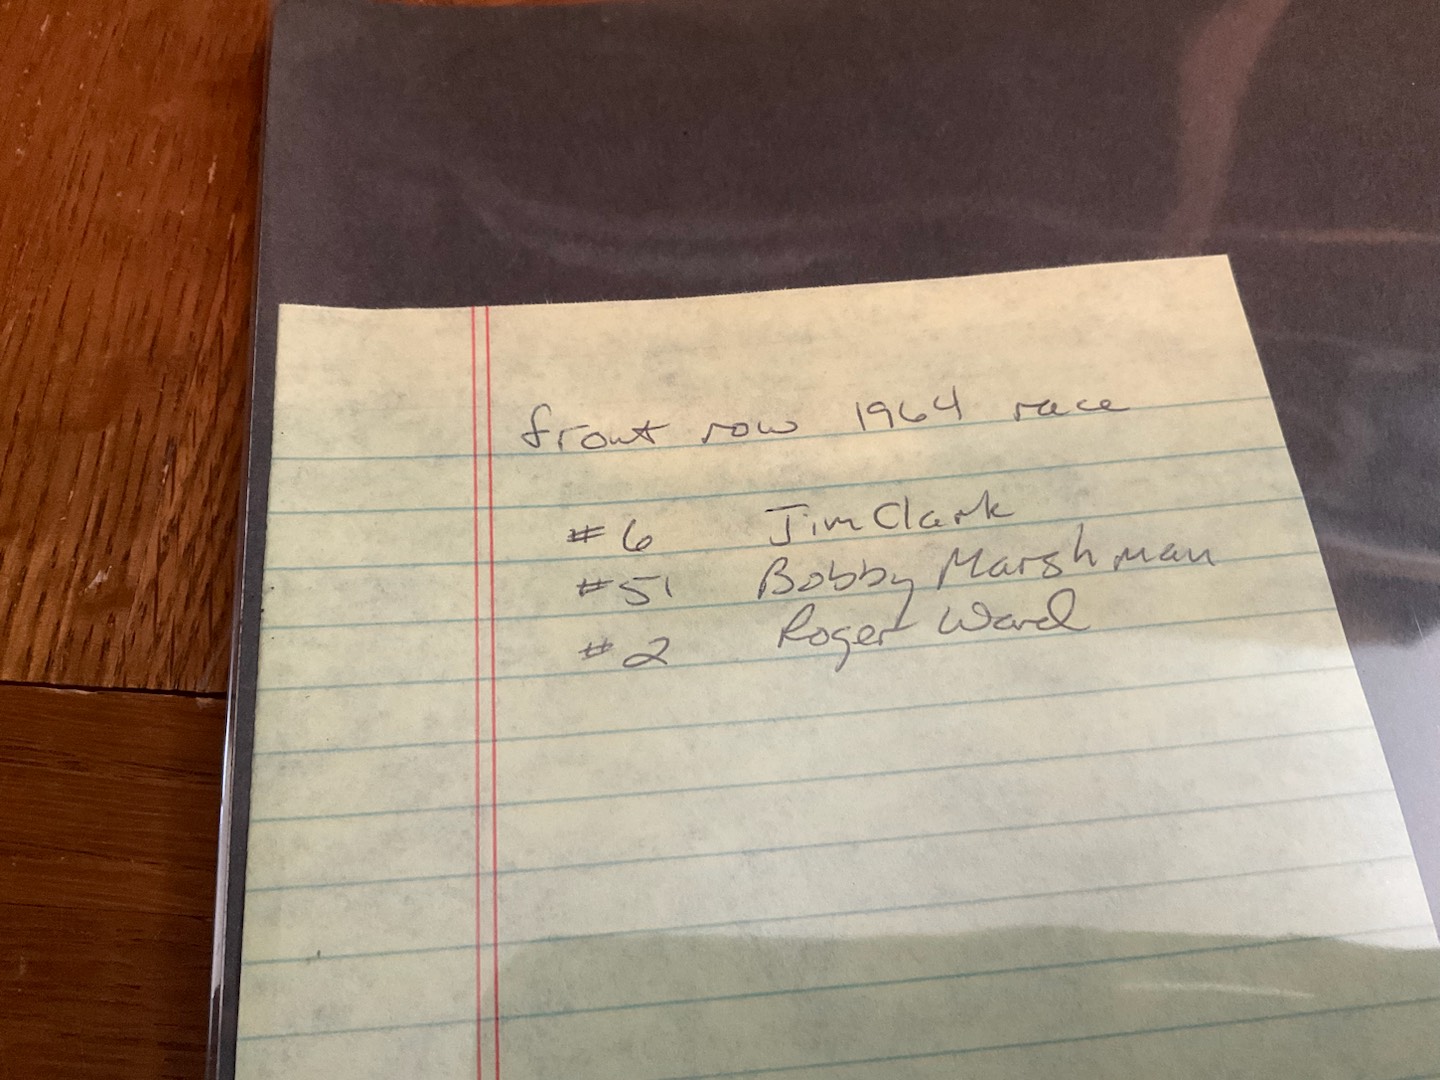 front row 1964 race
#6 Jim Clark
#51 Bobby Marshman
#2 Roger Ward